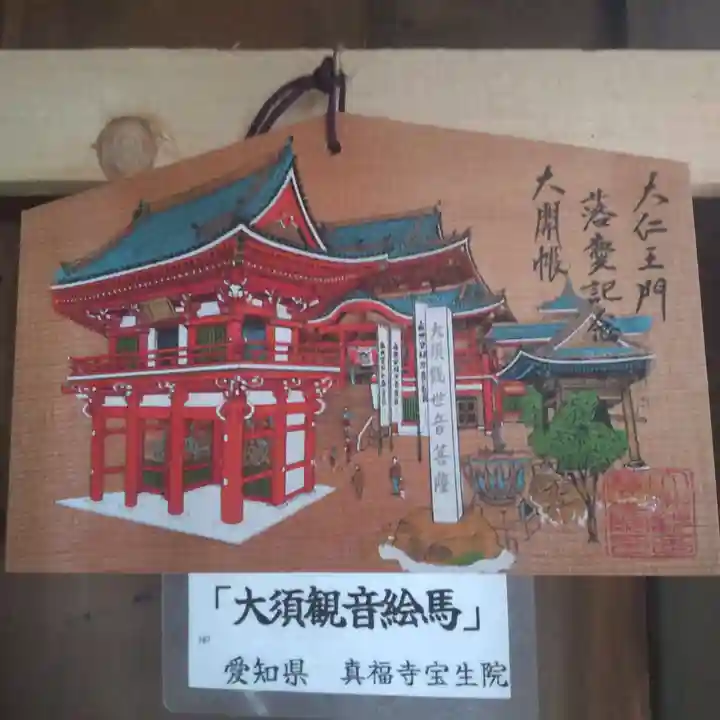 大仁王門
落慶記念
大開帳
大須観世音菩薩
「大須観音絵馬」
愛知県　真福寺宝生院